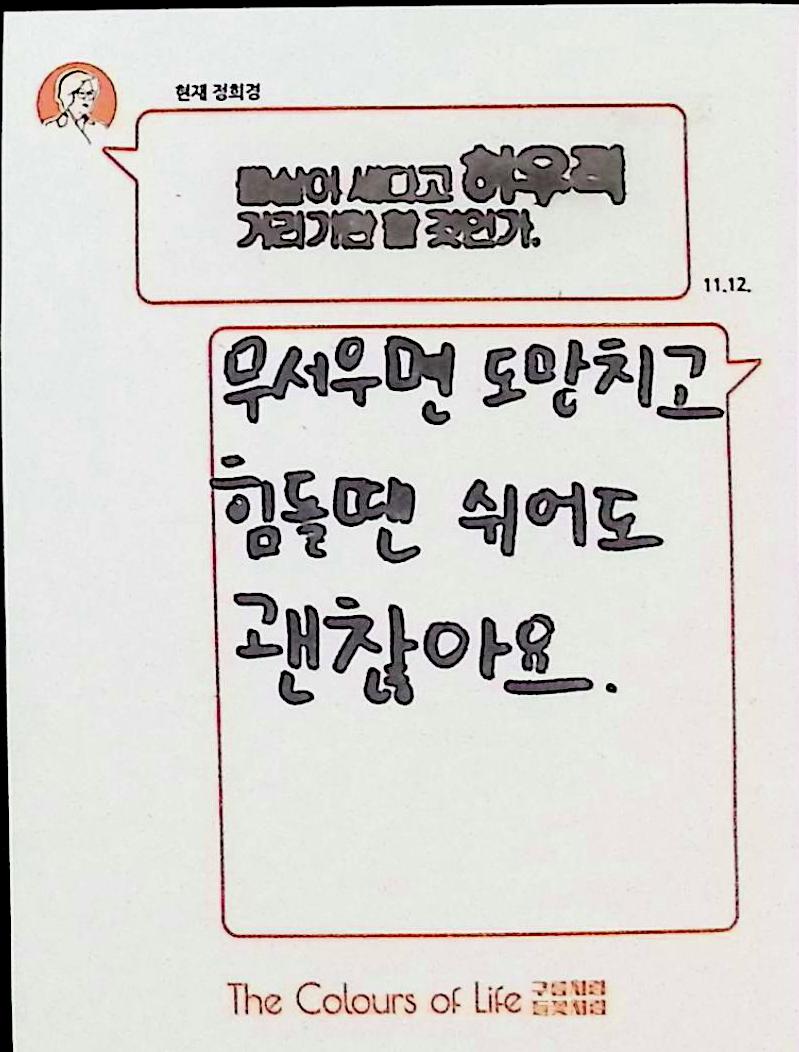 현재 정희경
물살이 세다고 허우적
거리기만 할 것인가.
11.12.
무서우면 도망치고
힘들땐 쉬어도
괜찮아요.
The Colours of Life 구름처럼
들꽃처럼